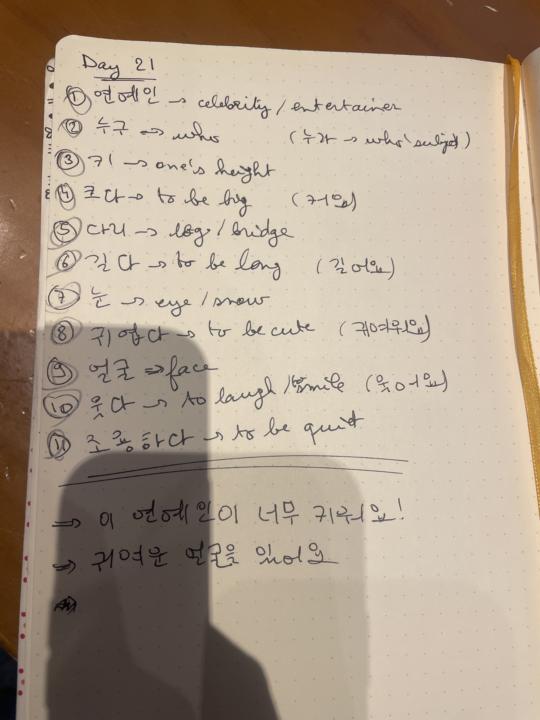 Day 21
① 연예인 → celebrity / entertainer
② 누구 → who (누가 → who subject)
③ 키 → one's height
④ 크다 → to be big (커요)
⑤ 다리 → leg / bridge
⑥ 길다 → to be long (길어요)
⑦ 눈 → eye / snow
⑧ 귀엽다 → to be cute (귀여워요)
⑨ 얼굴 → face
⑩ 웃다 → to laugh / smile (웃어요)
⑪ 조용하다 → to be quiet
→ 이 연예인이 너무 귀워요!
→ 귀여운 얼굴을 있어요